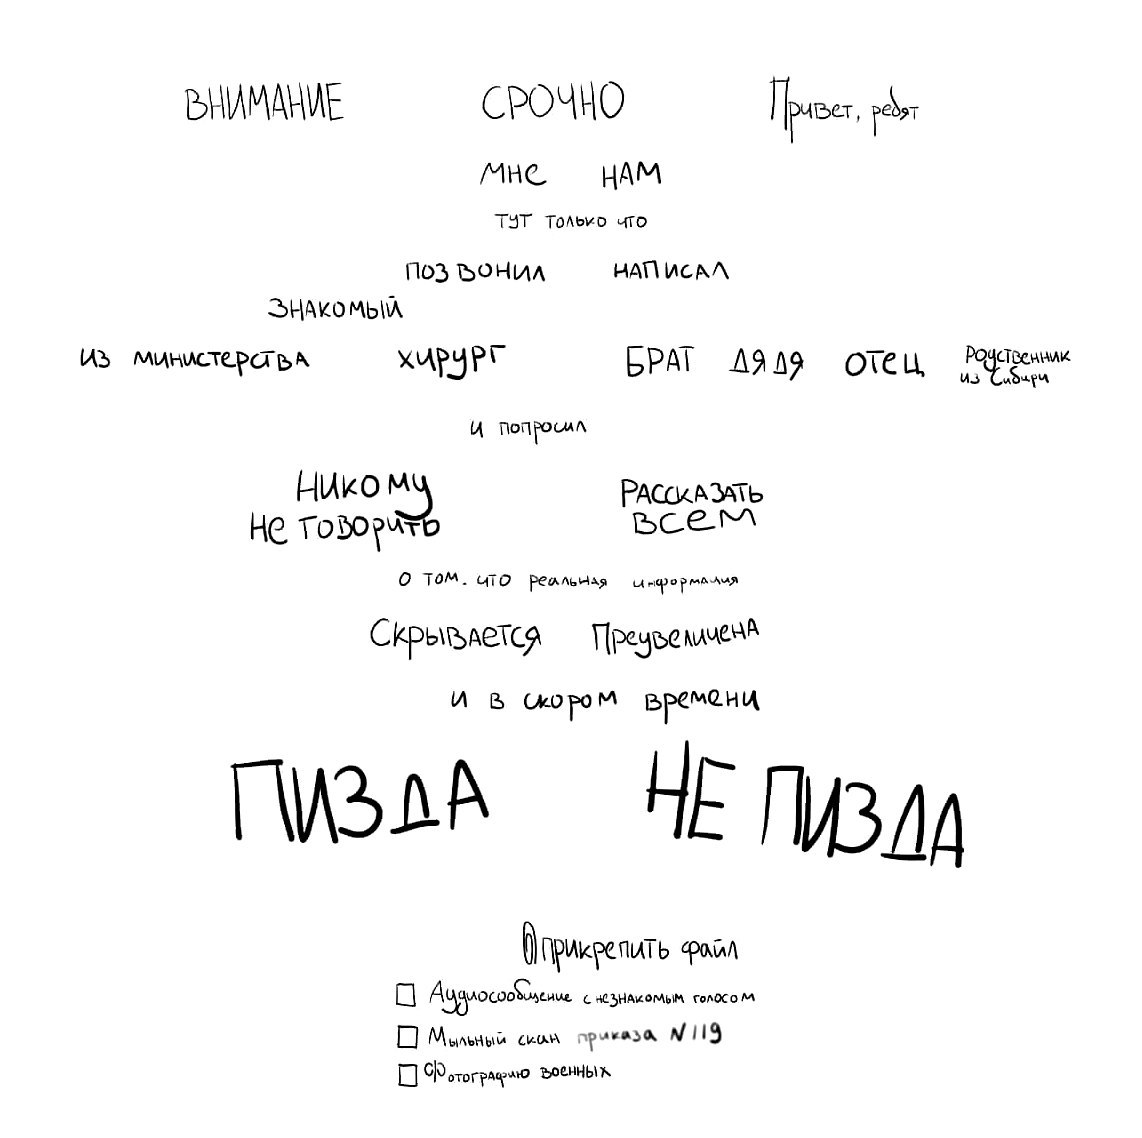 ВНИМАНИЕ СРОЧНО Привет, ребят
мне нам
тут только что
позвонил написал
знакомый
из министерства хирург БРАТ дядя отец Родственник
из Сибири
и попросил
Никому Рассказать
не говорить всем
о том. что реальная информация
Скрывается Преувеличена
и в скором времени
ПИЗДА НЕ ПИЗДА
прикрепить файл
Аудиосообщение с незнакомым голосом
Мыльный скан приказа №119
Фотографию военных